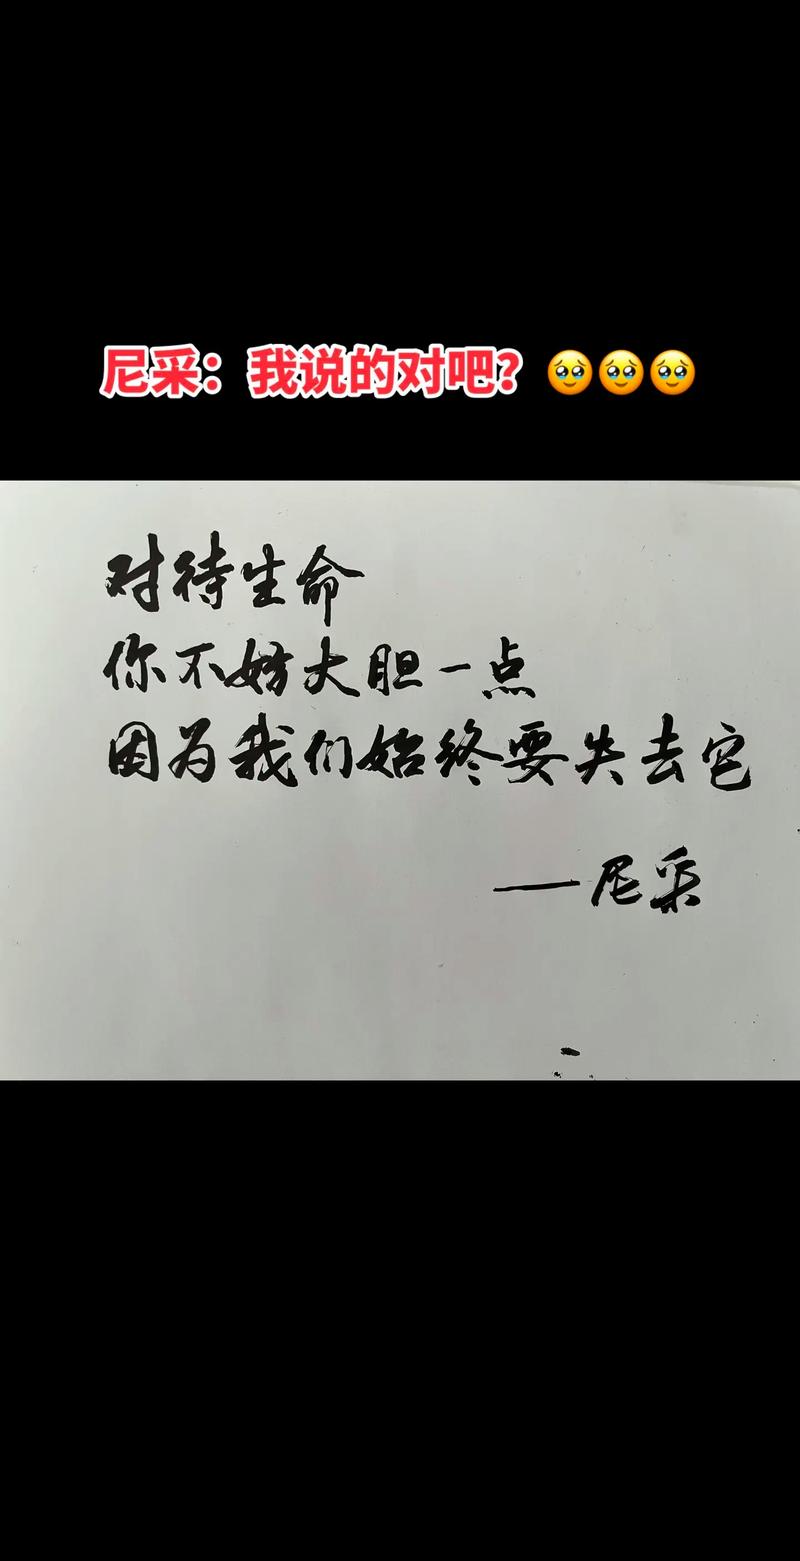 尼采：我说的对吧？🥹🥹🥹
对待生命
你不妨大胆一点
因为我们始终要失去它
——尼采